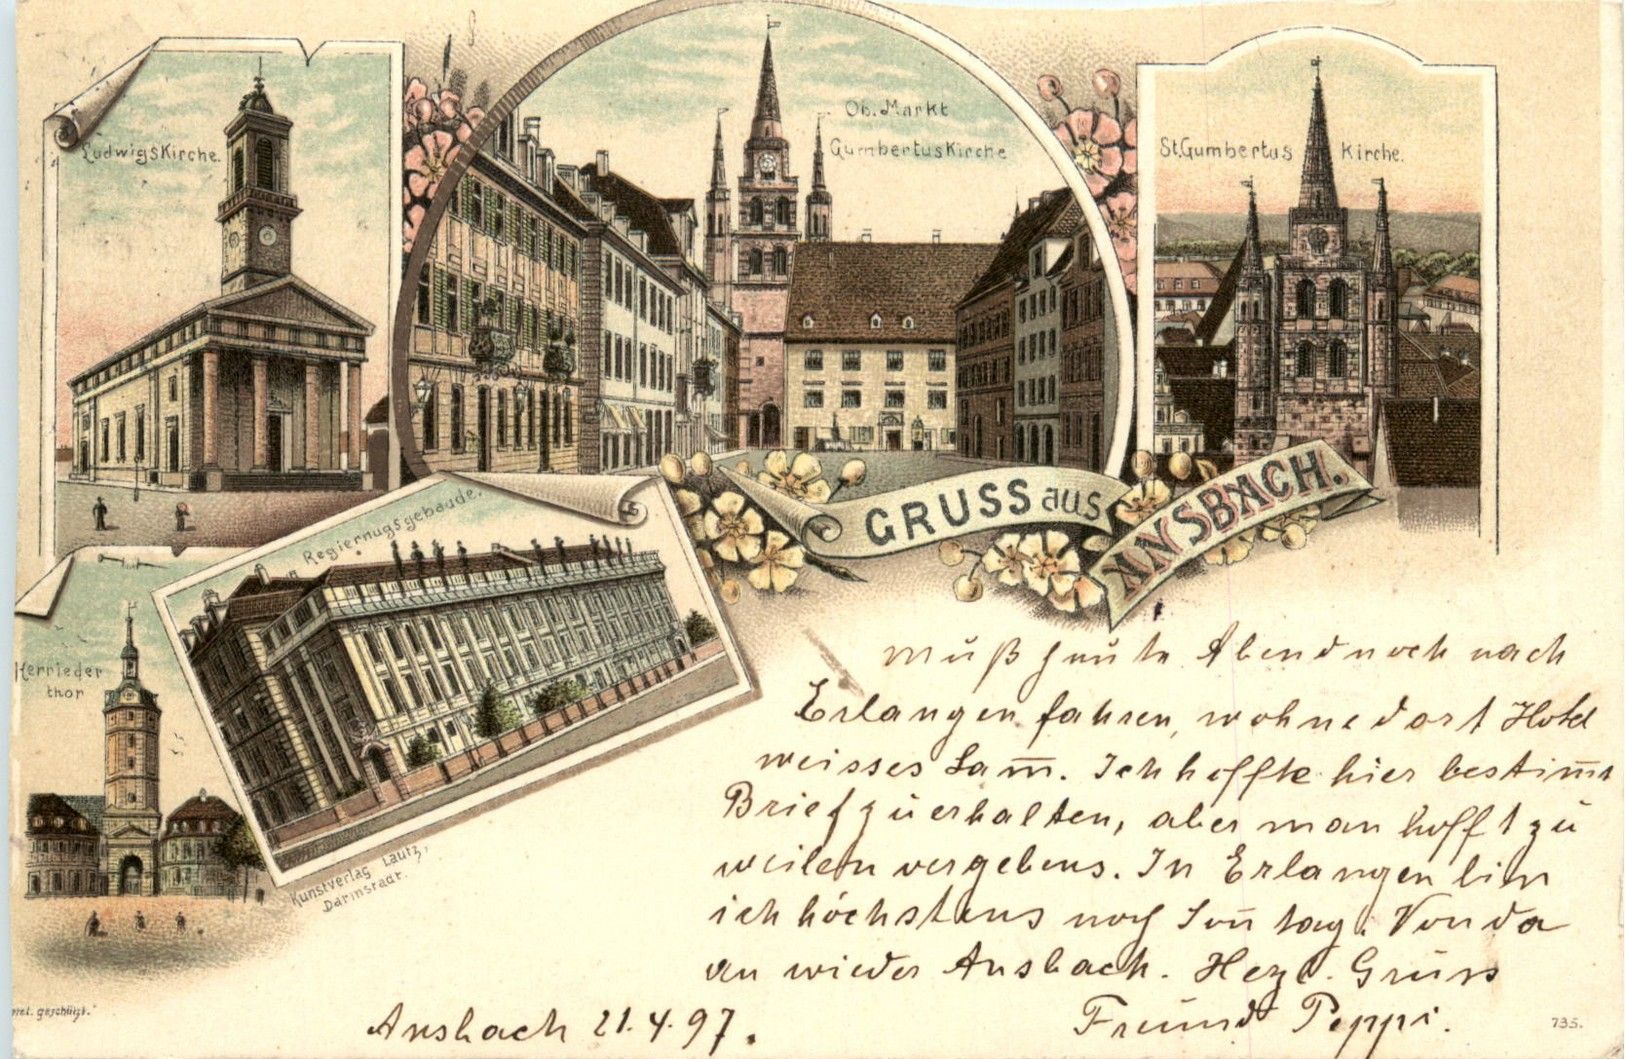 Ludwigskirche.
Ob. Markt
Gumbertuskirche
St. Gumbertus Kirche.
GRUSS aus
ANSBACH.
Regiernugsgebäude.
Herrieder
thor
Kunstverlag Lautz,
Darmstadt.
Muß heute Abend noch nach
Erlangen fahren, wohne dort Hotel
weisses Lam̅. Ich hoffte hier bestim̅t
Brief zu erhalten, aber man hofft zu
weilen vergebens. In Erlangen bin
ich höchstens noch Son̅tag. Von da
an wieder Ansbach. Herzl. Gruss
Freund Peppi.
Ansbach 21.4.97.
geschützt."
735.